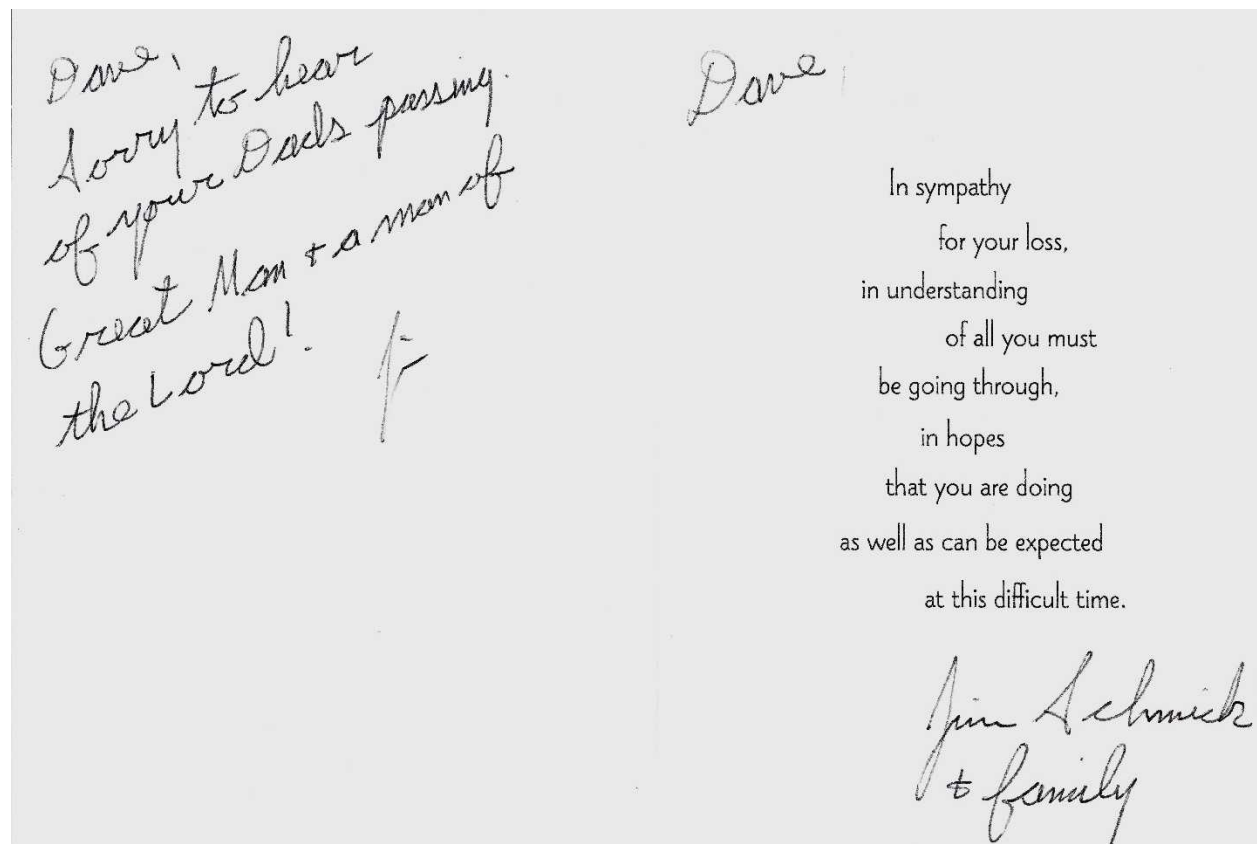 Dave,
Sorry to hear
of your Dads passing.
Great Man + a man of
the Lord!
Jim
Dave,
In sympathy
for your loss,
in understanding
of all you must
be going through,
in hopes
that you are doing
as well as can be expected
at this difficult time.
Jim Schmick
+ family